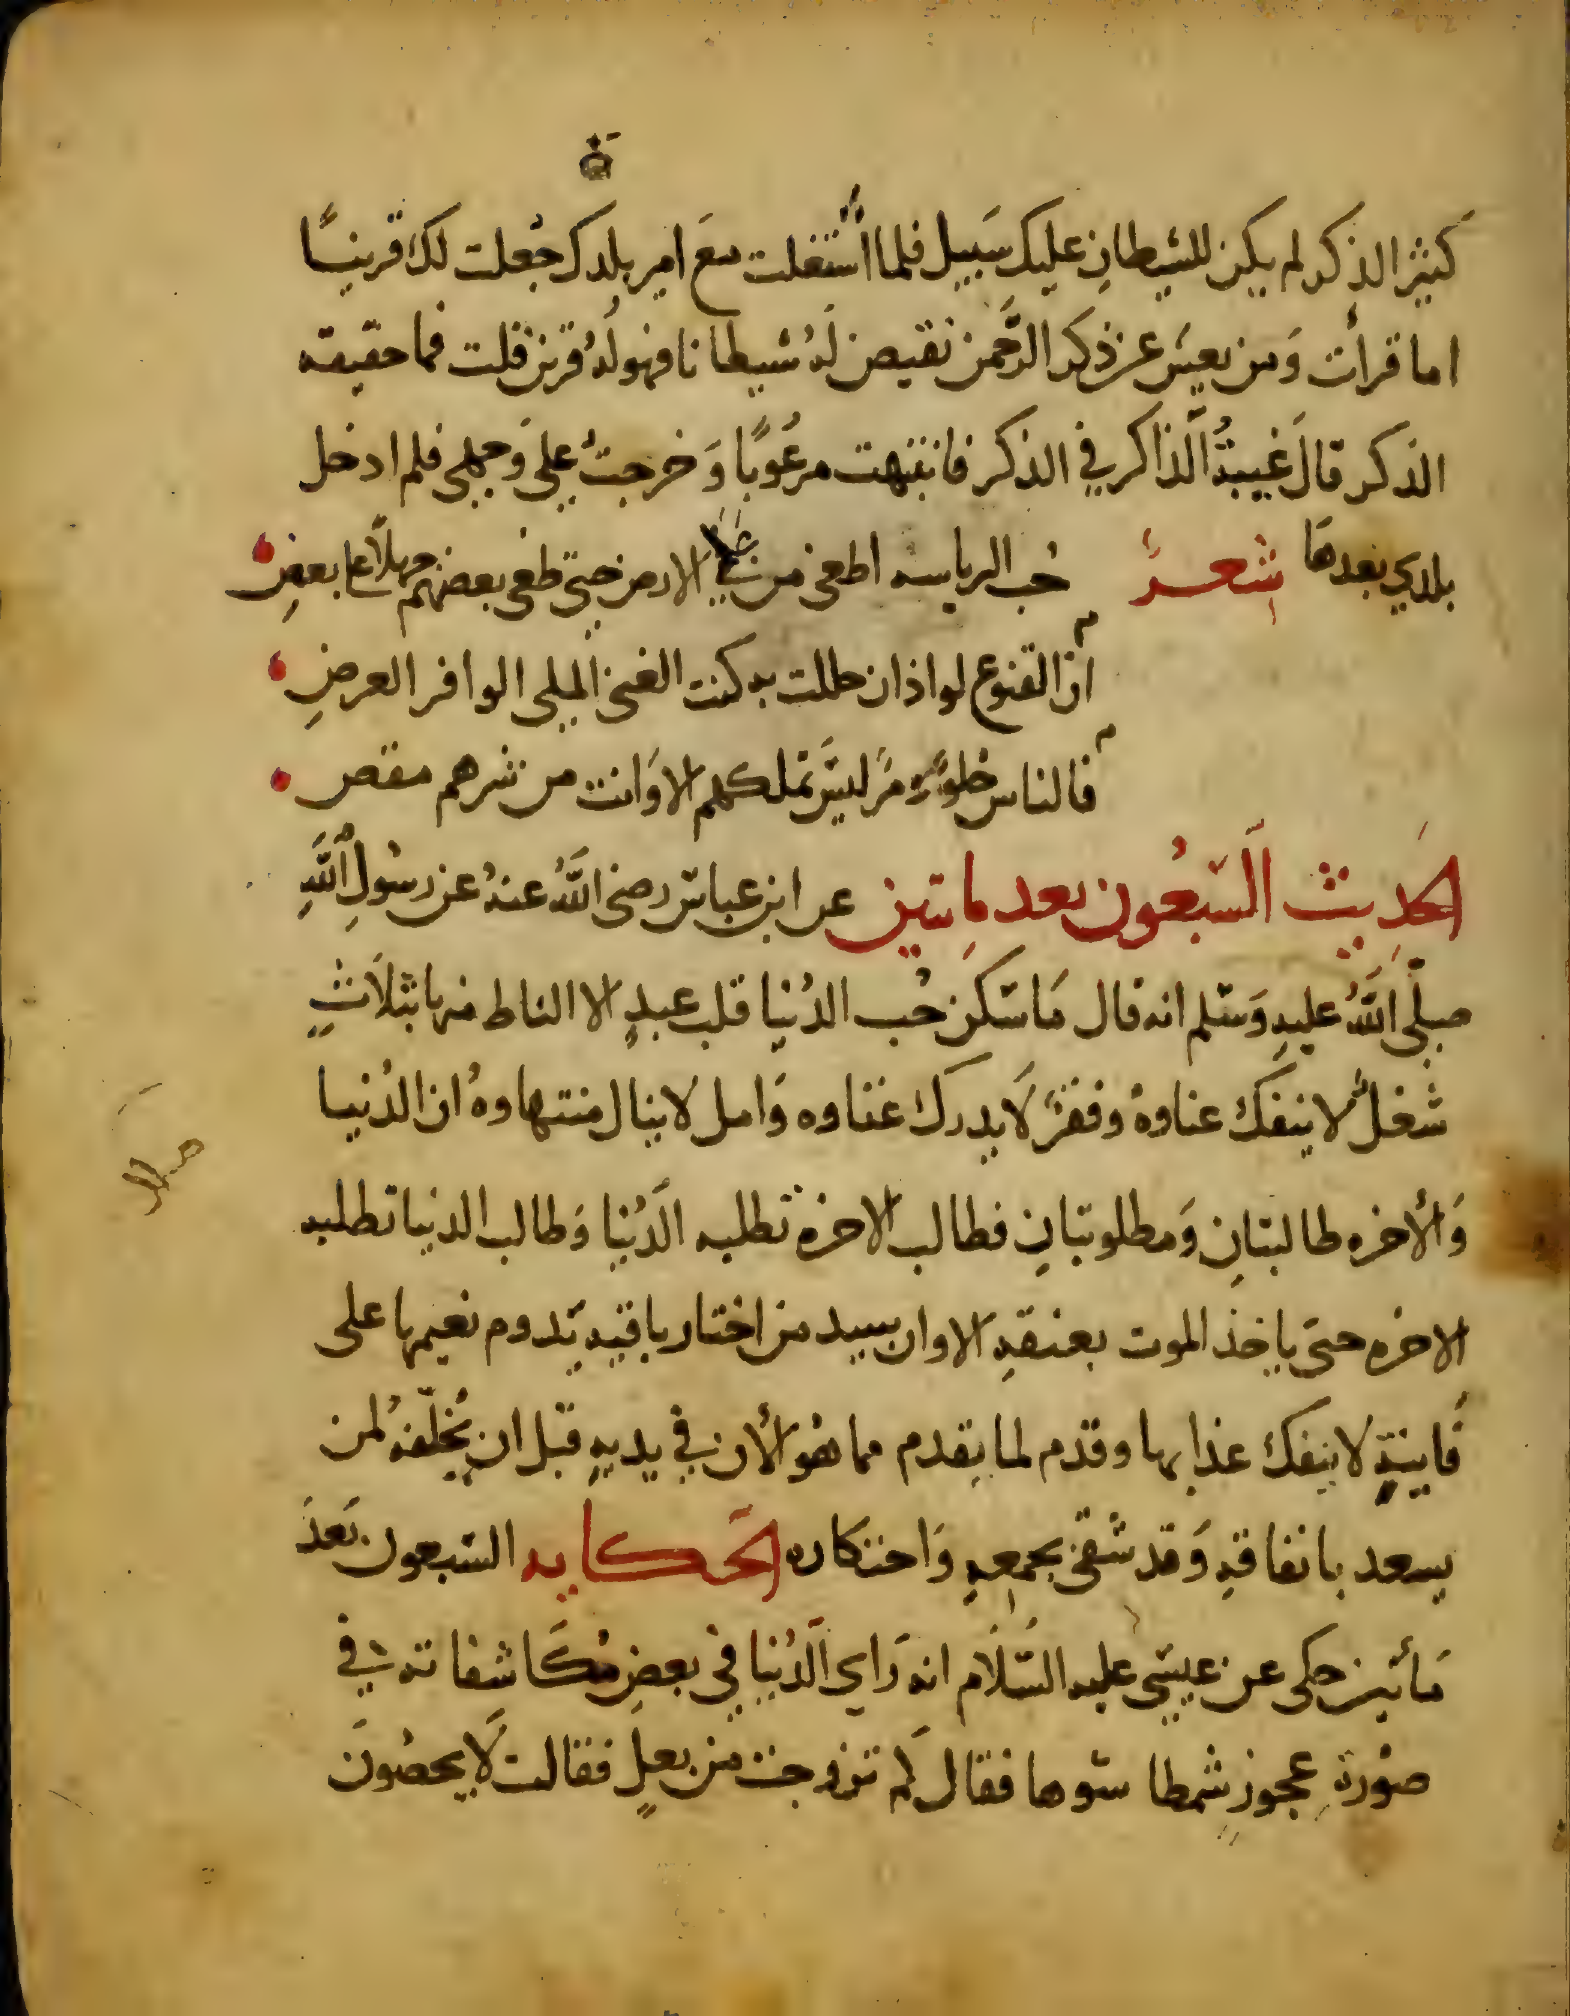 كثير الذكر لم يكن للشيطان عليك سَبيل فلما اشتغلت مع امير بلدك جُعلت لك قرينًا
اما قرأت وَمن يعش عن ذكر الرَّحمن نقيض لهُ شيطانا فهو لهُ قرين قلت فما حقيقة
الذكر قالَ غيبةُ الذاكر في الذكر فانتبهت مرعُوبًا وَخرجتُ على وَجهى فلم ادخل
بلدي بعدهَا شعرً حُب الرياسه اطغى من على الارض حتى طغى بعضهم جهلاً على بعضِ
ان القنوع لواذ ان حللت به كنت الغنى الملى الوافر العرضِ
فالناس حُلوٌ ومرٌ ليسَ تملكهم الا وَانت من شرهم مقص
الحَدِيث السَّبعُون بعد مايتين عن ابن عباس رضى اللَّهُ عنهُ عن رسُولِ اللَّهِ
صلّى اللَّهُ عليهِ وَسَلم انه قال مَا سَكن حُب الدُنيا قلب عبدٍ الا التاط منها بثلاَثٍ
شُغلٌ لا ينفكَ عناوهُ وفقرٌ لاَ يدرك غناوه وَامل لا ينال منتهاوهُ ان الدُنيا
وَالأخره طالبتانِ وَمطلوبتانِ فطالب الاخرة تطلبه الدُنيا وَطالب الدنيا تطلبه
الاخره حتى ياخذ الموت بعنقهِ الا وان سيد من اختار باقيه يدوم نعيمها على
فَانيةٍ لا ينفك عذابها وقدم لما يقدم مما هُو الأن في يديهِ قبل ان يُخلّفهُ لمن
يسعد بانفاقهِ وَقد شقى بجمعهِ وَاحتكاره الحَكايه السّبعون بَعدَ
مَأتين حكى عن عيسَى عليه السَّلاَم انه رَاي الدُنيا في بعضِ مُكَاشفاته في
صُورة عجوزٍ شمطا سوها فقال لَها كم تزوجت من بعلٍ فقالت لاَ يحصُونَ